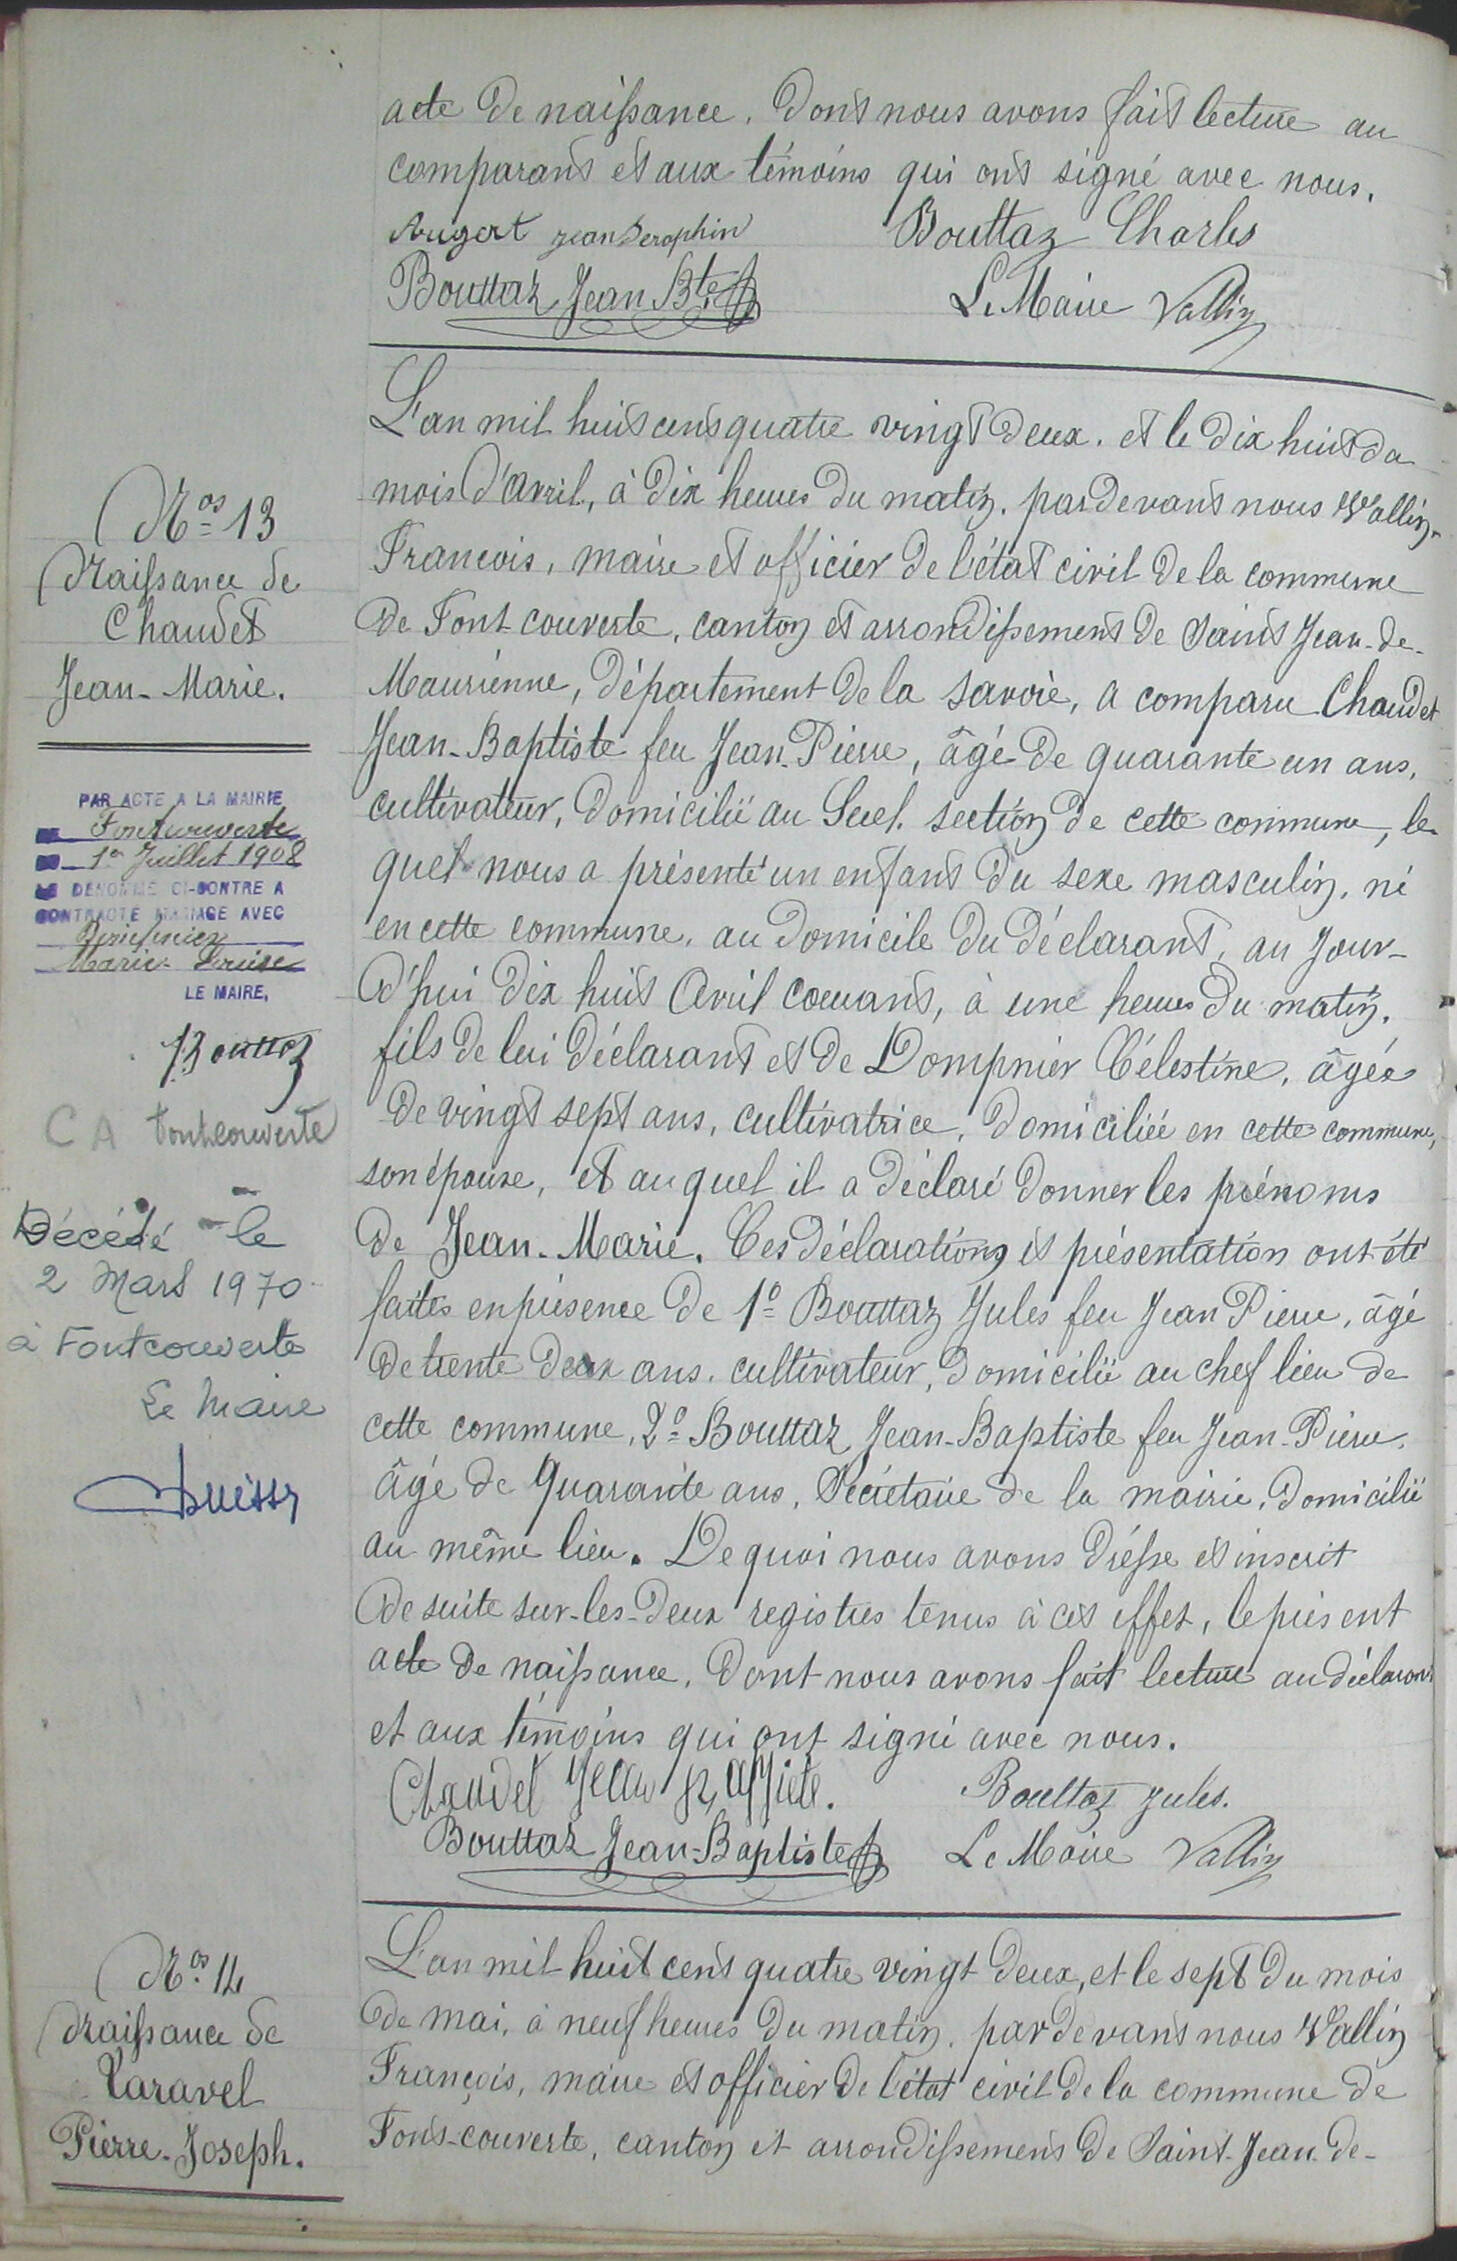 acte de naissance. Dont nous avons fait lecture au
comparant et aux témoins qui ont signé avec nous.
Augert jean Seraphin Bouttaz Charles
Bouttaz Jean Bte Le Maire Vallin
L'an mil huit cent quatre vingt deux. et le dix huit du
mois d'avril, à dix heures du matin. pardevant nous Vallin
François, maire et officier de l'état civil de la commune
de Font-couverte, canton et arrondissement de Saint Jean-de-
Maurienne, département de la Savoie, a comparu Chaudet
Jean-Baptiste feu Jean-Pierre, âgé de quarante un ans,
cultivateur, domicilié au section de cette commune, le
quel nous a présenté un enfant du sexe masculin, né
en cette commune, au domicile du déclarant, au jour-
d'hui dix huit Avril courant, à une heures du matin.
fils de lui déclarant et de Dompnier Célestine, âgée
de vingt sept ans, cultivatrice, domiciliée en cette commune,
son épouse, et auquel il a déclaré donner les prénoms
de Jean-Marie. Ces déclarations et présentation ont été
faites en présence de 1º Bouttaz Jules feu Jean Pierre, âgé
de trente deux ans, cultivateur, domicilié au chef lieu de
cette commune, 2º Bouttaz Jean-Baptiste feu Jean-Pierre.
âgé de Quarante ans, Sécrétaire de la mairie, domicilié
au même lieu. De quoi nous avons dressé et inscrit
de suite sur-les-deux registres tenus à cet effet, le présent
acte de naissance. Dont nous avons fait lecture au déclarant
et aux témoins qui ont signé avec nous.
Chaudet Jean Baptiste. Bouttaz Jules.
Bouttaz Jean-Baptiste Le Maire Vallin
L'an mil huit cent quatre vingt deux, et le sept du mois
de mai, à neuf heures du matin. pardevant nous Vallin
François, maire et officier de l'état civil de la commune de
Font-couverte, canton et arrondissement de Saint-Jean-de-
Nos 13
Naissance de
Chaudet
Jean-Marie.
PAR ACTE A LA MAIRIE
Fontcouverte
1er Juillet 1908
LE DENOMME CI-CONTRE A
CONTRACTE MARIAGE AVEC
Marie-Louise
LE MAIRE,
Bouttaz
C A Fontcouverte
Décédé le
2 Mars 1970
à Fontcouverte
Le Maire
Nos 14
Naissance de
Taravel
Pierre-Joseph.